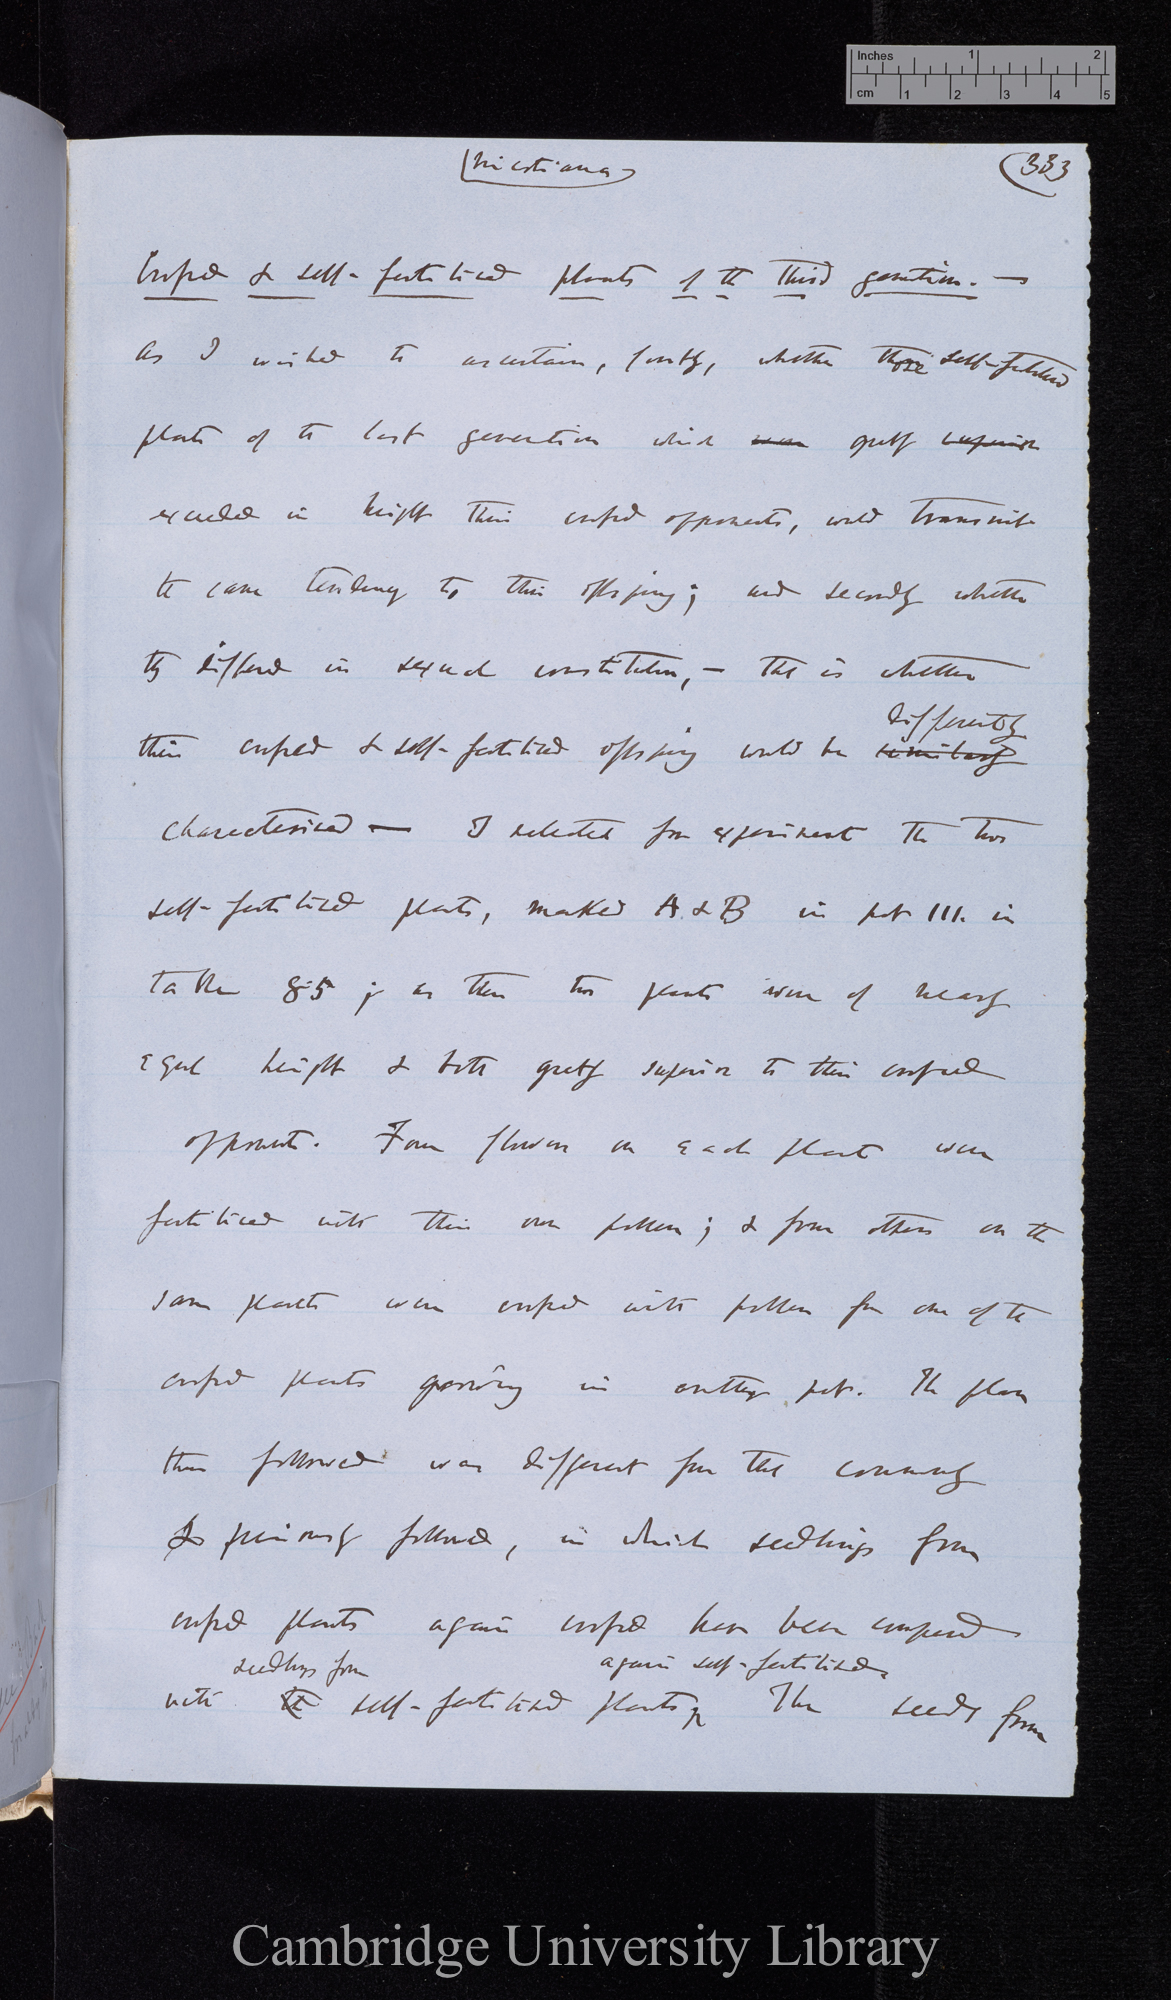 Inches 1 2
cm 1 2 3 4 5
Nicotiana 333
Crossed & self-fertilised plants of the Third generation. —
As I wished to ascertain, firstly, whether those self-fertilised
plants of the last generation which were greatly superior
exceeded in height their crossed opponents, would transmit
the same tendency to their offspring; and secondly whether
they differed in sexual constitution, — that is whether
differently
their crossed & self-fertilised offspring would be similarly
characterised — I selected for experiment the two
self-fertilised plants, marked A & B in pot III. in
table 85; as these two plants were of nearly
equal height & both greatly superior to their crossed
opponents. Four flowers on each plant were
fertilised with their own pollen; & four others on the
same plants were crossed with pollen from one of the
crossed plants growing in another pot. The plan
thus followed was different from that commonly
& previously followed, in which seedlings from
crossed plants again crossed have been compared
seedlings from again self-fertilised.
with the self-fertilised plants The seeds from
Cambridge University Library